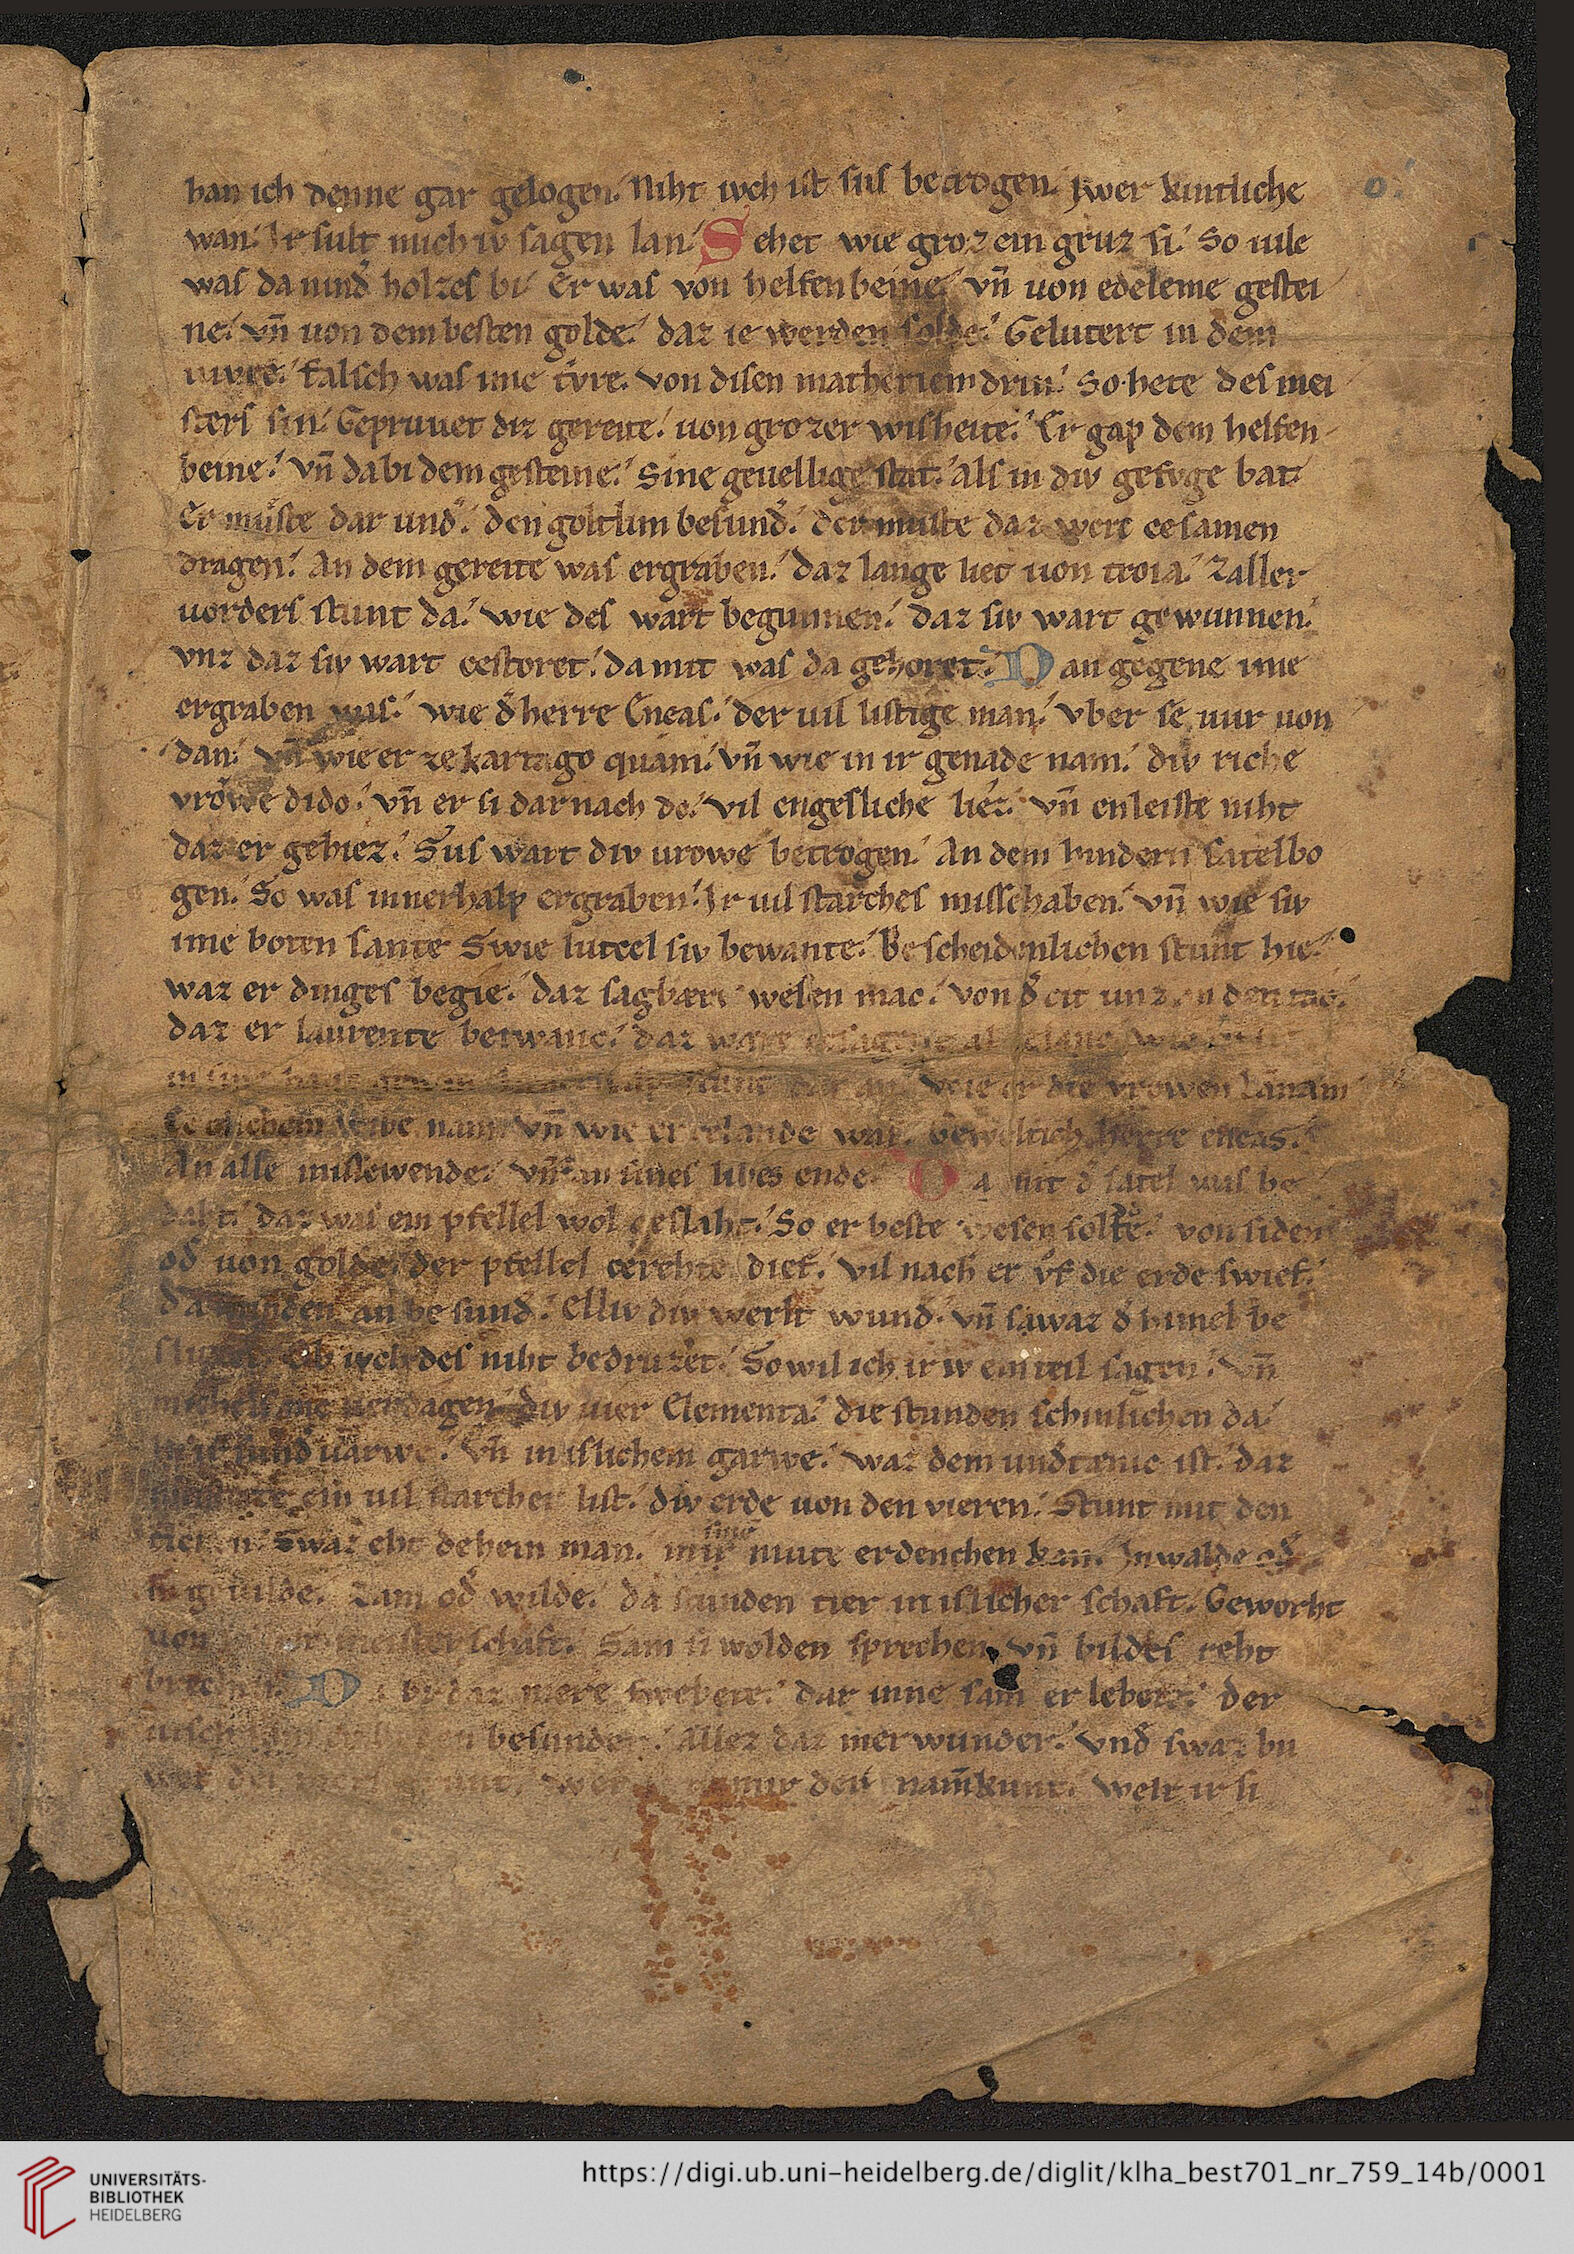 han ich denne gar gelogen. Niht iwch ist sus betrogen. Iwer kintliche
wan. Ir sult mich iv sagen lan. Sehet wie groz ein gruz si. So uile
was da mind͛ holzes bi. Er was von helfenbeine. vn̄ uon edeleme gestei
ne. vn̄ uon dem besten golde. daz ie werden solde. Gelutert in dem
uivre. falsch was ime tvre. von disen matheriem drin. So hete des mei
sters sin. Gepruuet diz gereite. uon grozer wisheite. Er gap dem helfen
beine. vn̄ dabi dem gesteine. Sine geuellige stat. Als in div gefvge bat.
Er muͤste dar und͛. den goltlim besund͛. der muste daz werc cesamen
dragen. An dem gereite was ergraben. daz lange liet uon troia. Zaller
uorders stunt da. wie des wart begunnen. daz siv wart gewunnen.
vnz daz siv wart cestoret. da mit was da gehoret. Dan gegene ime
ergraben was. wie d͛ herre Eneas. der uil listige man. vber se uur uon
dan. vn̄ wie er ze kartago quam. vn̄ wie in ir genade nam. div riche
vrowe dido. vn̄ er si dar nach do. vil engesliche liez. vn̄ enleiste niht
daz er gehiez. Sus wart div urowe betrogen. An dem hindern satelbo
gen. So was innerhalp ergraben. Ir uil starches missehaben. vn̄ wie siv
ime boten sante Swie luteel siv bewante. Bescheidenlichen stunt hie.
waz er dinges begie. daz sagbære wesen mac. von d͛ cit unz an den tac.
daz er laurente betwanc. daz were
wie er die vrowen Lauiam
ce elichem wibe nam. vn̄ wie er celande was. Geweltich herre eneas.
An alle missewende. vn̄ an sines libes ende. Da mit d͛ satel was be
daht. daz was ein pfellel wol geslaht. So er beste wesen solte. von siden
od͛ uon golde. der pfellel cerehte dief. vil nach er vf die erde swief.
da an besund͛. Elliv div werlt wund͛. vn̄ sawaz d͛ himel be
iuch des niht bedruzet. So wil ich ir iv ein teil sagen. vn̄
uerdagen. div uier Elementa. die stunden schinlichen da.
uarwe. vn̄ in islichem garwe. waz dem und͛tænic ist. daz
ein uil starcher list. div erde uon den vieren. Stunt mit den
tieren. Swaz eht dehein man. in sine mute erdenchen kan. In walde od͛
uilde. Zam od͛ wilde. da stunden tier in islicher schaft. Geworht
uon meisterschaft. Sam si wolden sprechen. vn̄ bildes reht
brechen. Da bi daz mere swebete. dar inne sam er lebete. der
uisch besunder. Allez daz merwunder. vnd͛ swaz bu
wet des meres grunt. wer mir den nam̄ kunt. welt ir si
UNIVERSITÄTS-
BIBLIOTHEK
HEIDELBERG
https://digi.ub.uni-heidelberg.de/diglit/klha_best701_nr_759_14b/0001